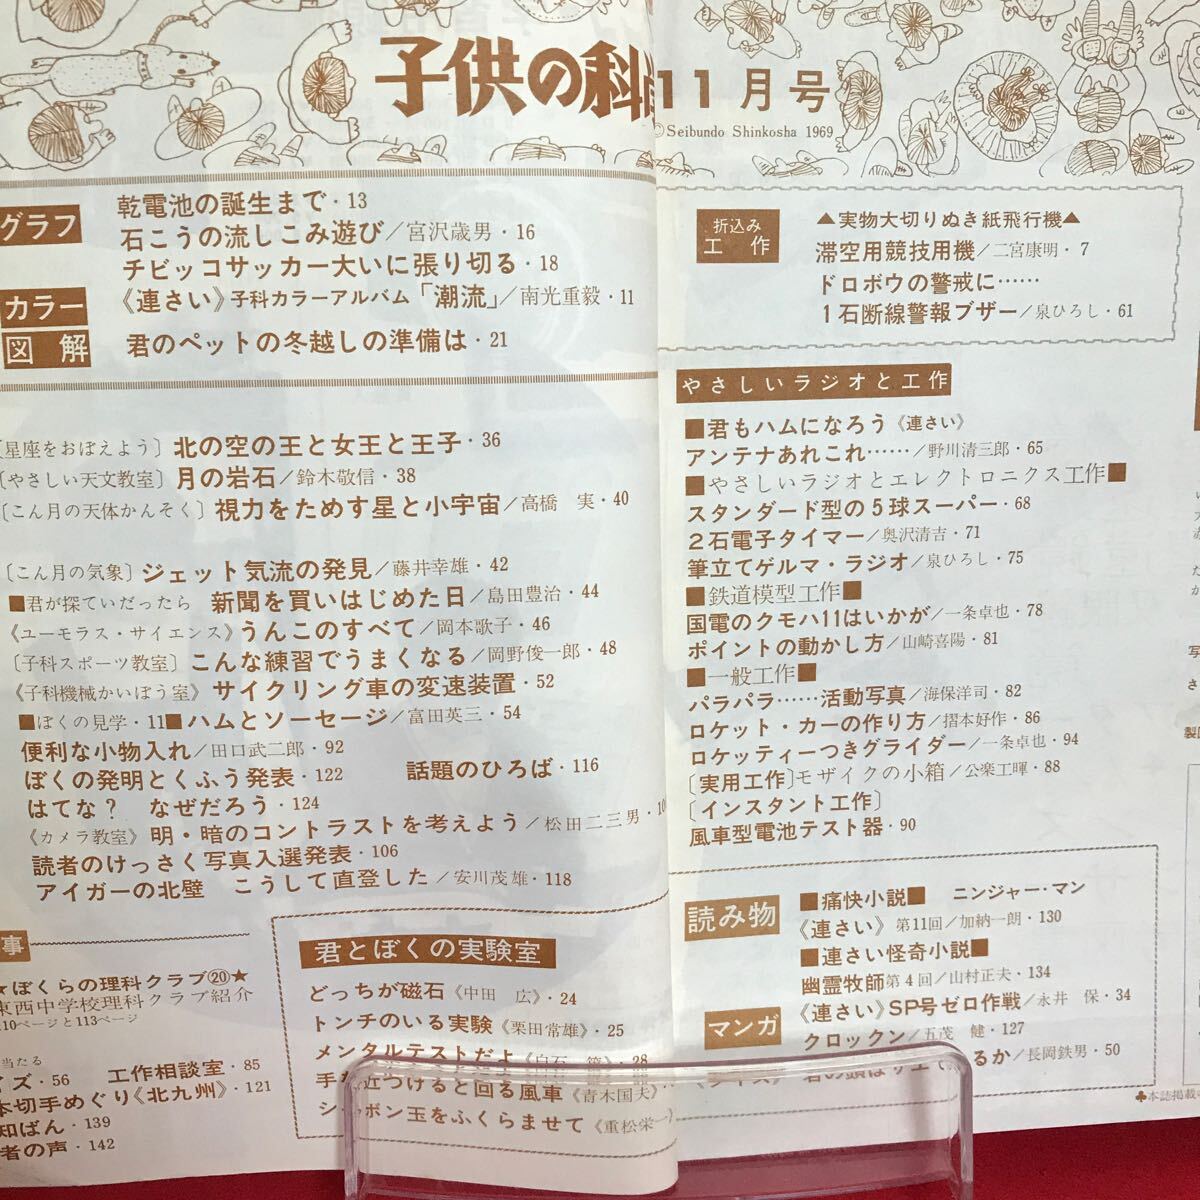 子供の科
11月号
©Seibundo Shinkosha 1969
グラフ
乾電池の誕生まで・13
石こうの流しこみ遊び／宮沢歳男・16
チビッコサッカー大いに張り切る・18
カラー
《連さい》子科カラーアルバム「潮流」／南光重毅・11
図解
君のペットの冬越しの準備は・21
〔星座をおぼえよう〕北の空の王と女王と王子・36
〔やさしい天文教室〕月の岩石／鈴木敬信・38
〔こん月の天体かんそく〕視力をためす星と小宇宙／高橋　実・40
〔こん月の気象〕ジェット気流の発見／藤井幸雄・42
■君が探ていだったら　新聞を買いはじめた日／島田豊治・44
《ユーモラス・サイエンス》うんこのすべて／岡本歌子・46
〔子科スポーツ教室〕こんな練習でうまくなる／岡野俊一郎・48
《子科機械かいぼう室》サイクリング車の変速装置・52
■ぼくの見学・11■ハムとソーセージ／富田英三・54
便利な小物入れ／田口武二郎・92
ぼくの発明とくふう発表・122　話題のひろば・116
はてな？　なぜだろう・124
《カメラ教室》明・暗のコントラストを考えよう／松田二三男・
読者のけっさく写真入選発表・106
アイガーの北壁　こうして直登した／安川茂雄・118
事
★ぼくらの理科クラブ⑳★
東西中学校理科クラブ紹介
110ページと113ページ
当たる
イズ・56　工作相談室・85
本切手めぐり《北九州》・121
知ばん・139
者の声・142
君とぼくの実験室
どっちが磁石《中田　広》・24
トンチのいる実験《栗田常雄》・25
メンタルテストだよ《白石　　》・28
手　近づけると回る風車《青木国夫》
シャボン玉をふくらませて《重松栄一
折込み工作
▲実物大切りぬき紙飛行機▲
滞空用競技用機／二宮康明・7
ドロボウの警戒に……
1石断線警報ブザー／泉ひろし・61
やさしいラジオと工作
■君もハムになろう《連さい》
アンテナあれこれ……／野川清三郎・65
■やさしいラジオとエレクトロニクス工作■
スタンダード型の5球スーパー・68
2石電子タイマー／奥沢清吉・71
筆立てゲルマ・ラジオ／泉ひろし・75
■鉄道模型工作■
国電のクモハ11はいかが／一条卓也・78
ポイントの動かし方／山崎喜陽・81
■一般工作■
パラパラ……活動写真／海保洋司・82
ロケット・カーの作り方／摺本好作・86
ロケッティーつきグライダー／一条卓也・94
〔実用工作〕モザイクの小箱／公楽工暉・88
〔インスタント工作〕
風車型電池テスト器・90
読み物
■痛快小説■　ニンジャー・マン
《連さい》第11回／加納一朗・130
■連さい怪奇小説■
幽霊牧師第4回／山村正夫・134
マンガ
《連さい》SP号ゼロ作戦／永井　保・34
クロックン／五茂　健・127
《クイズ》君の頭は　　　るか／長岡鉄男・50
♣本誌掲載